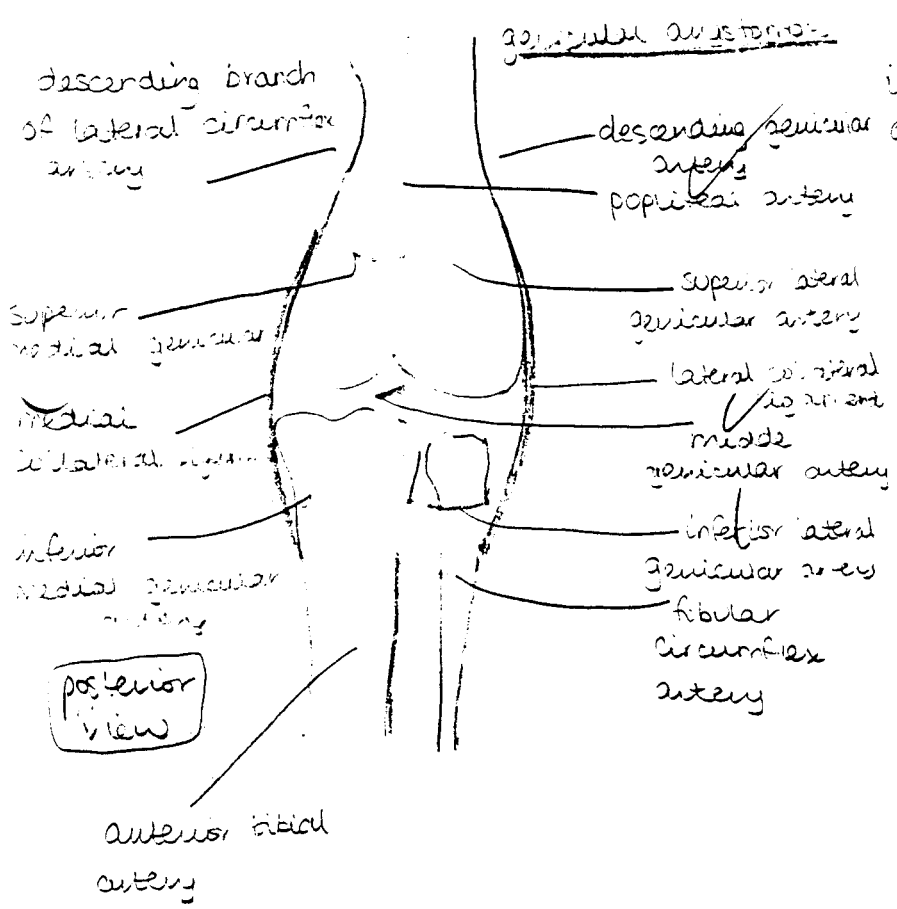 genicular
descending branch
of lateral circumflex
artery
descending genicular
artery
popliteal artery
superior
medial genicular
superior lateral
genicular artery
lateral collateral
ligament
medial
collateral
middle
genicular artery
inferior
medial genicular
artery
inferior lateral
genicular artery
fibular
circumflex
artery
posterior
view
anterior tibial
artery